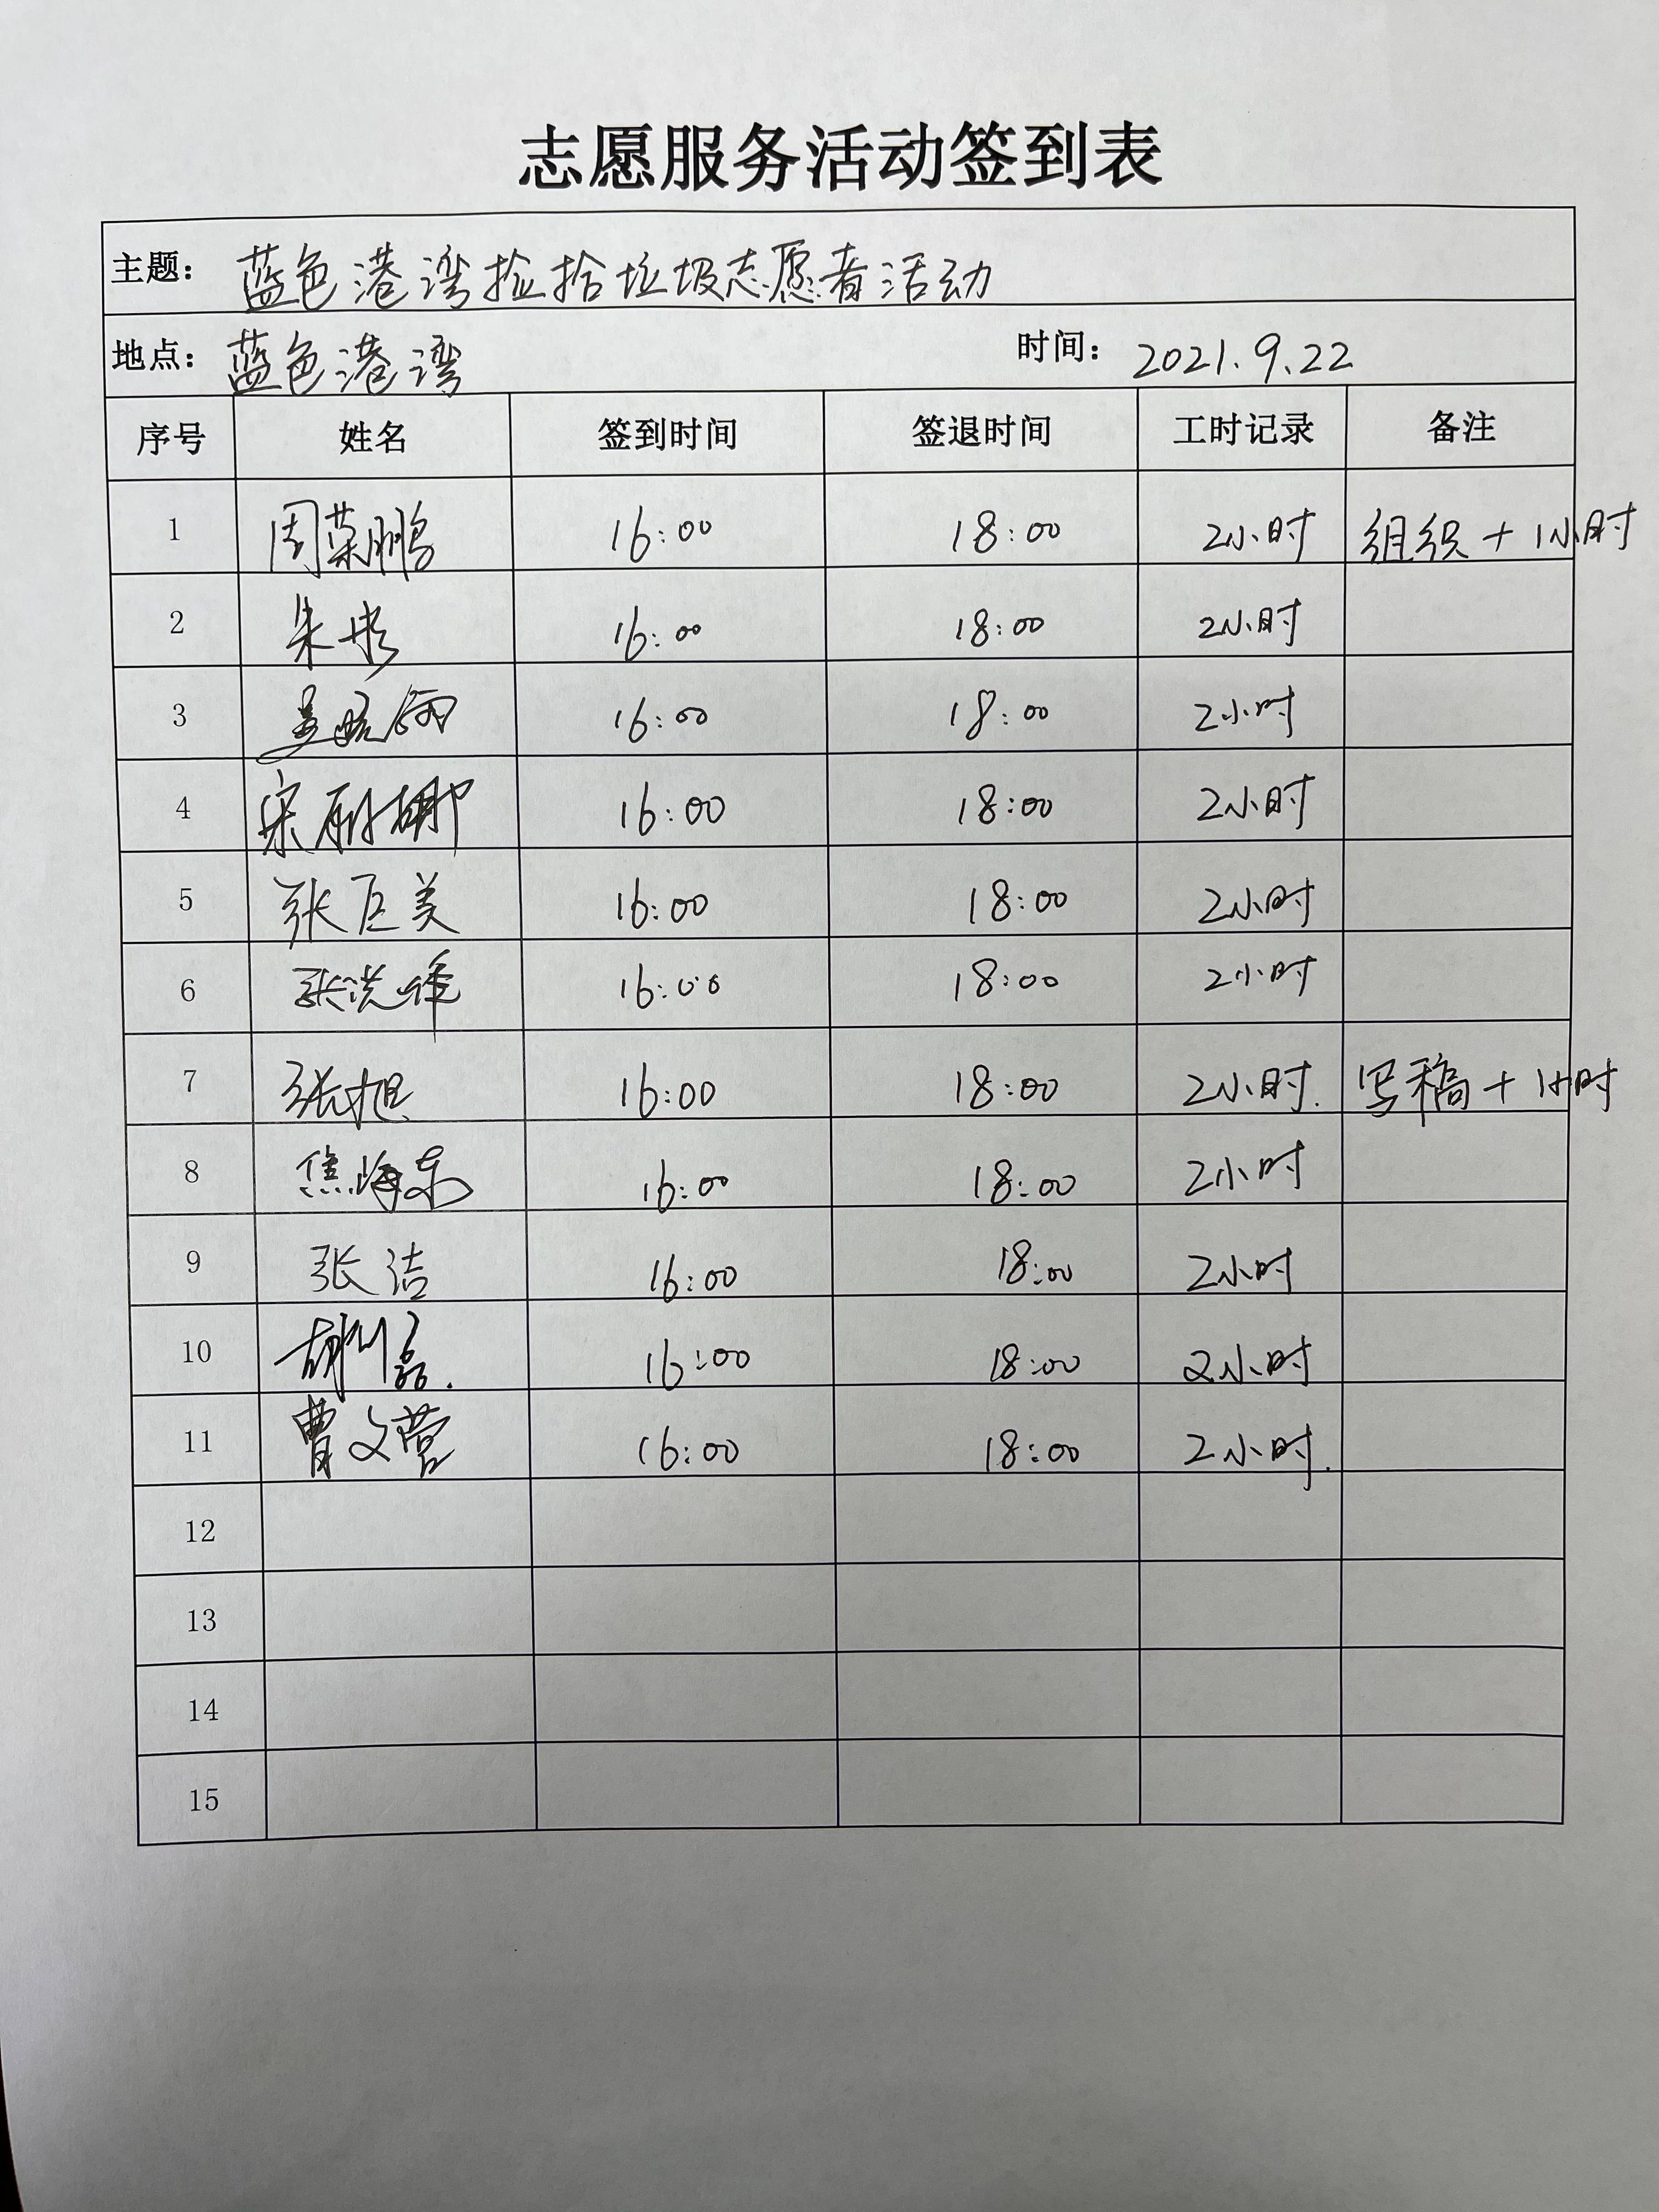 志愿服务活动签到表
主题: 蓝色港湾捡拾垃圾志愿者活动
地点: 蓝色港湾 时间: 2021.9.22
序号 姓名 签到时间 签退时间 工时记录 备注
1 周荣鹏 16:00 18:00 2小时 组织+1小时
2 朱 16:00 18:00 2小时
3 16:00 18:00 2小时
4 宋 16:00 18:00 2小时
5 张巨美 16:00 18:00 2小时
6 张洪峰 16:00 18:00 2小时
7 张旭 16:00 18:00 2小时. 写稿+1小时
8 焦海东 16:00 18:00 2小时
9 张洁 16:00 18:00 2小时
10 胡 16:00 18:00 2小时
11 曹文营 16:00 18:00 2小时.
12
13
14
15